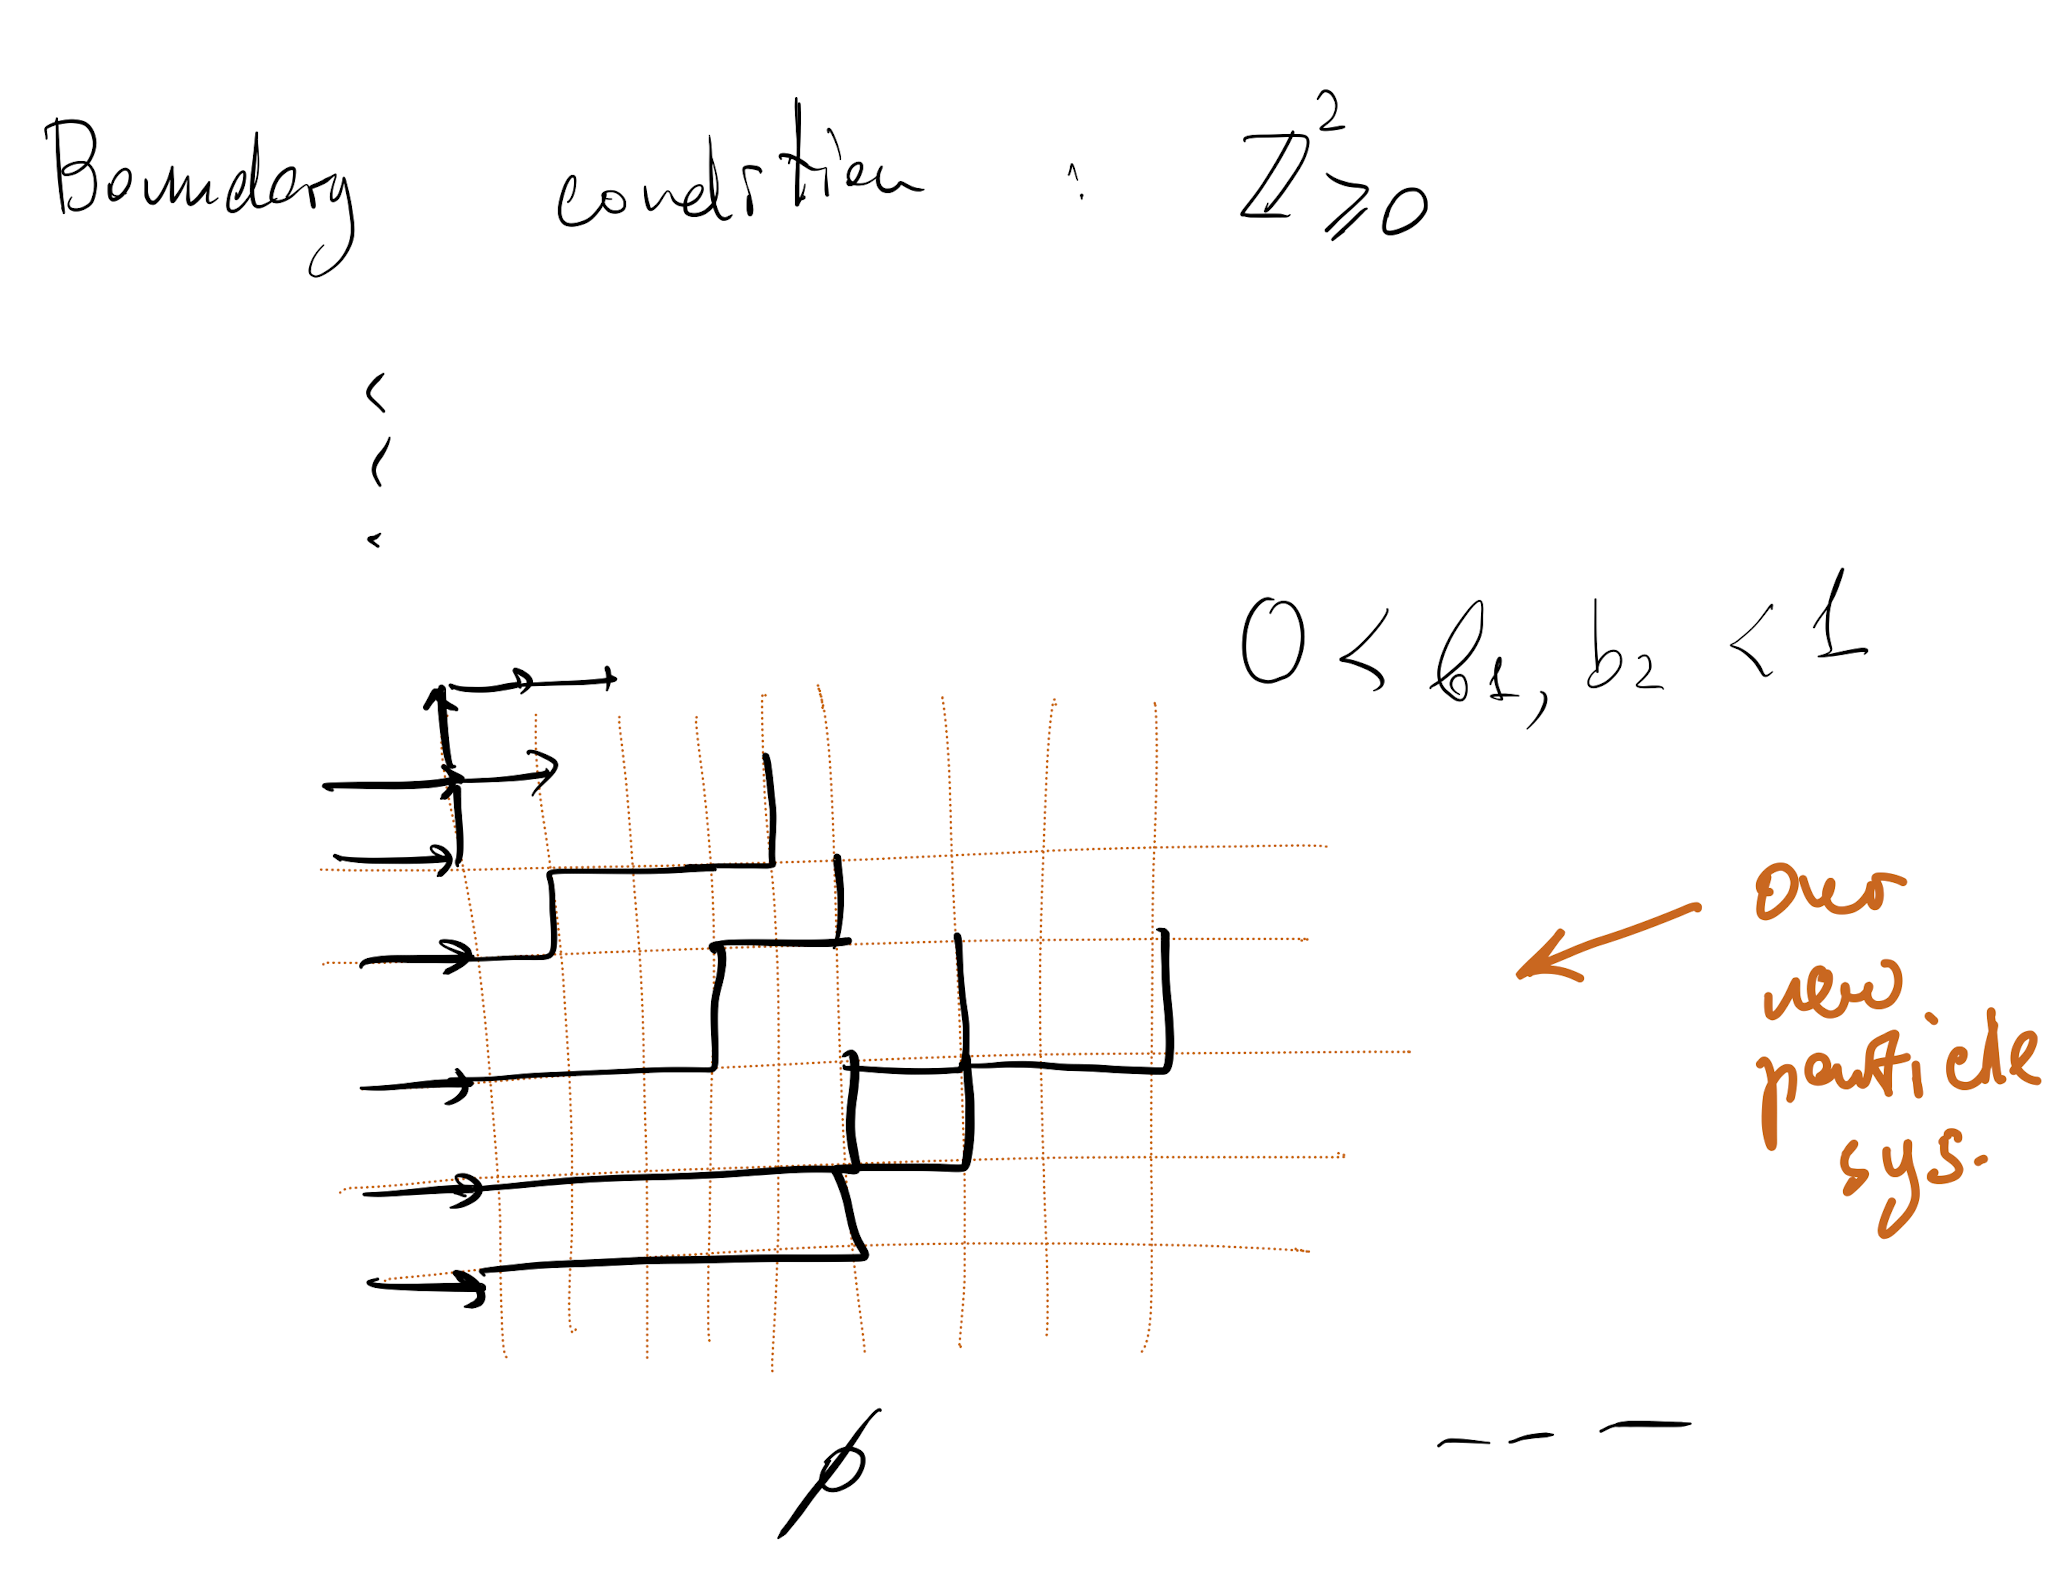 Boundary condition : ℤ²≥0
0 < b₁, b₂ < 1
Our
new
particle
sys.
∅